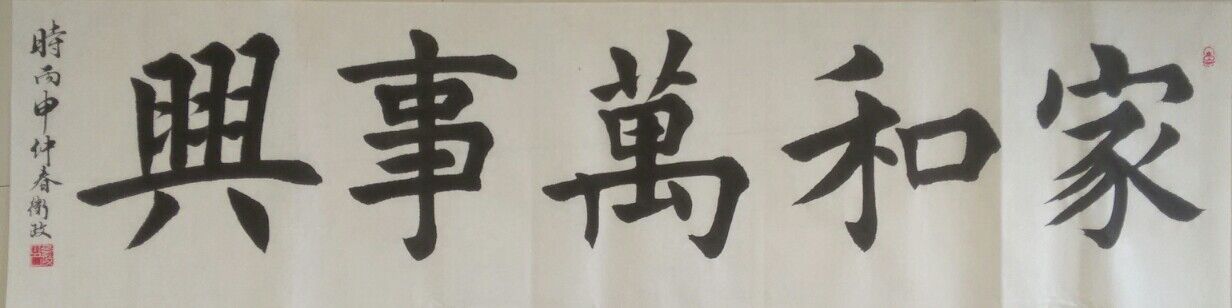 家和萬事興
時丙申仲春衛政